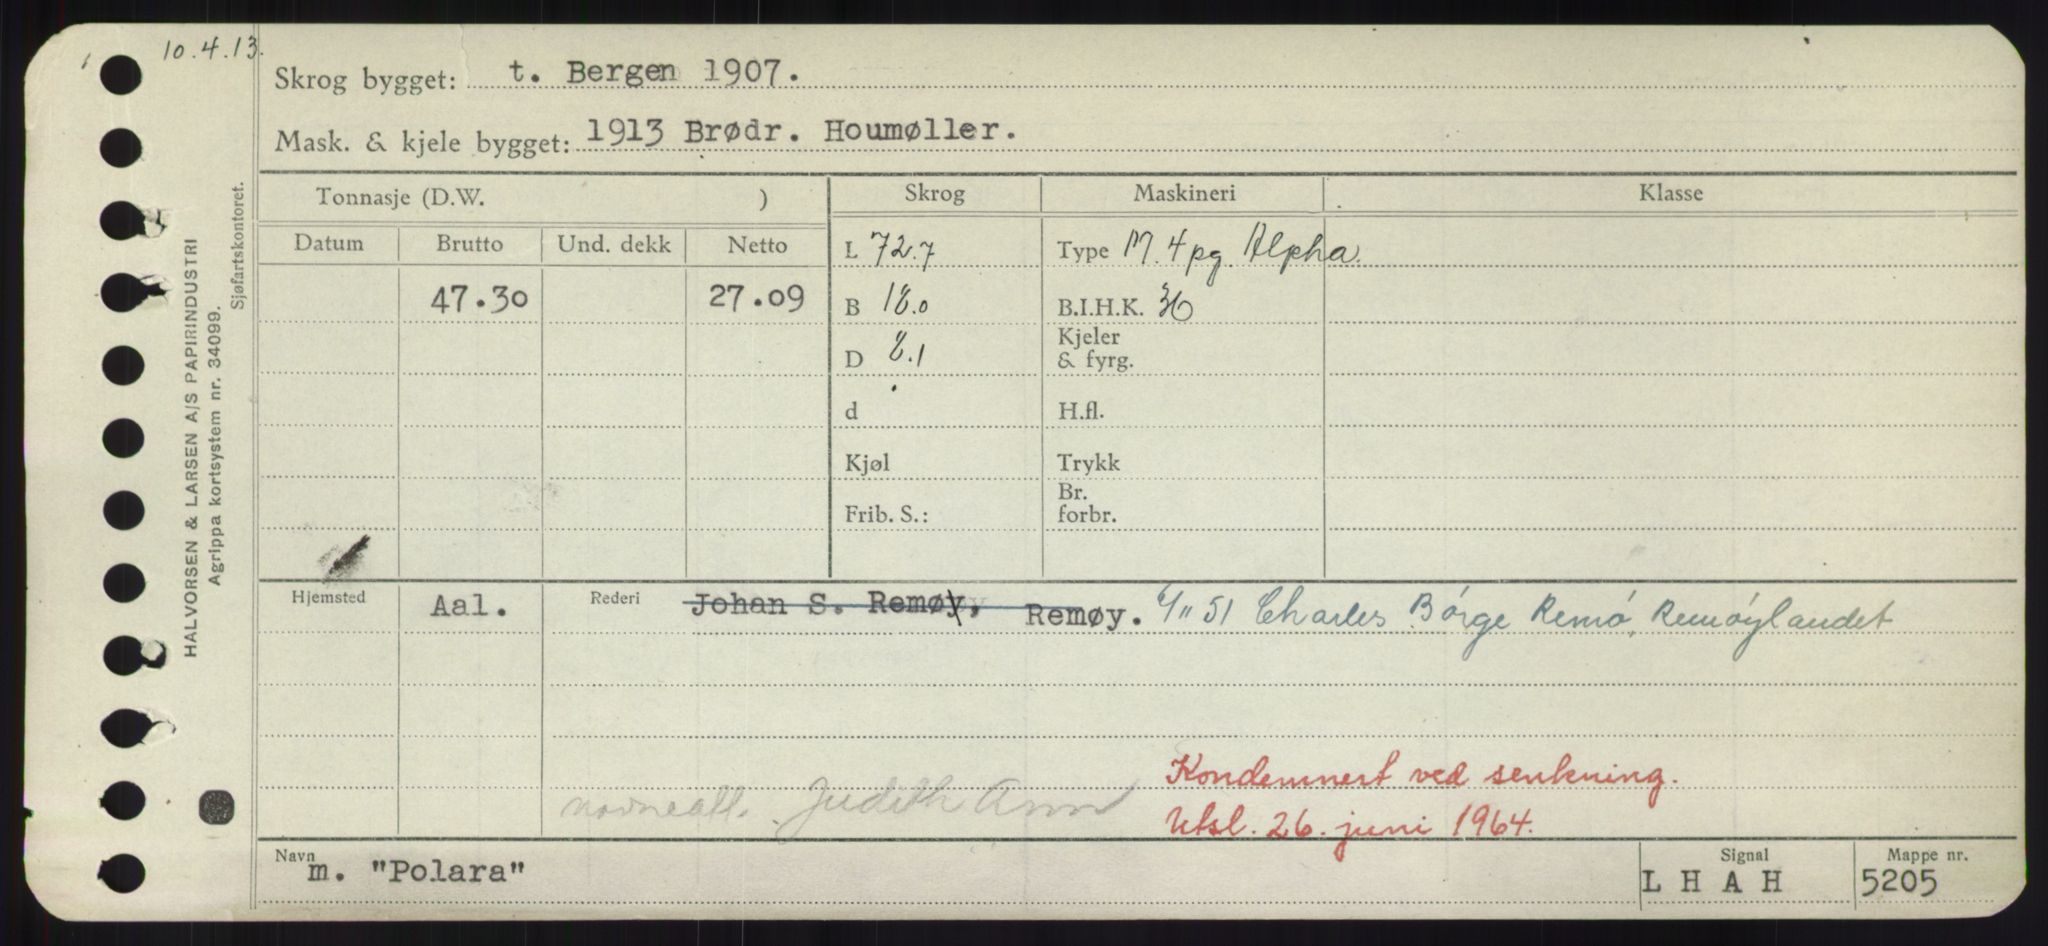 10.4.13.
Skrog bygget: t. Bergen 1907.
Mask. & kjele bygget: 1913 Brødr. Houmøller.
Tonnasje (D.W. )
Skrog Maskineri Klasse
Datum Brutto Und. dekk Netto
L 72.7 Type M. 4pg. Alpha.
47.30 27.09
B 18.0 B.I.H.K. 36
D 8.1 Kjeler
& fyrg.
d H.fl.
Kjøl Trykk
Frib. S.: Br.
forbr.
Hjemsted Aal. Rederi Johan S. Remøy, Remøy. 6/11 51 Charles Børge Remø, Remøylandet
Kondemnert ved senkning.
navneall. Judith Ann Utsl. 26. juni 1964.
Navn m. "Polara" Signal L H A H Mappe nr. 5205
HALVORSEN & LARSEN A/S PAPIRINDUSTRI
Agrippa kortsystem nr. 34099.
Sjøfartskontoret.